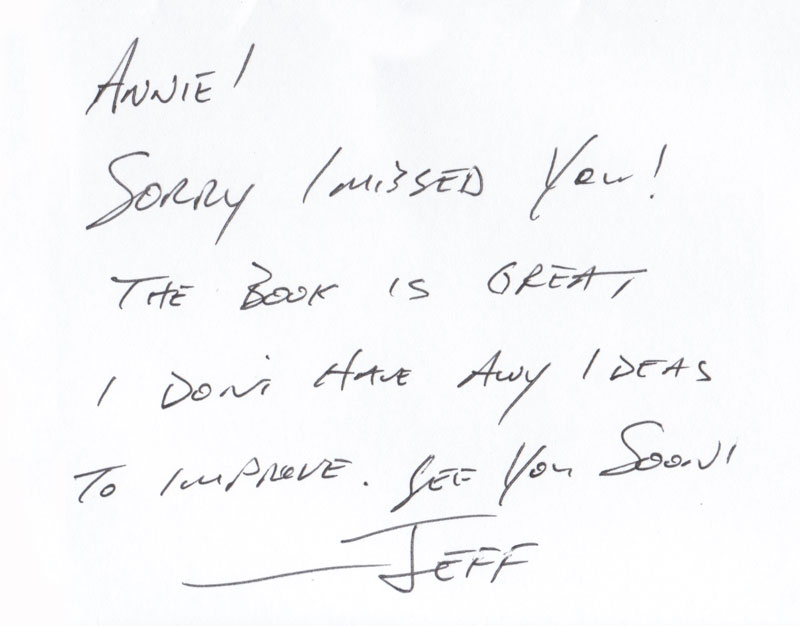 ANNIE!
SORRY I MISSED YOU!
THE BOOK IS GREAT
I DON'T HAVE ANY IDEAS
TO IMPROVE. SEE YOU SOON!
—JEFF